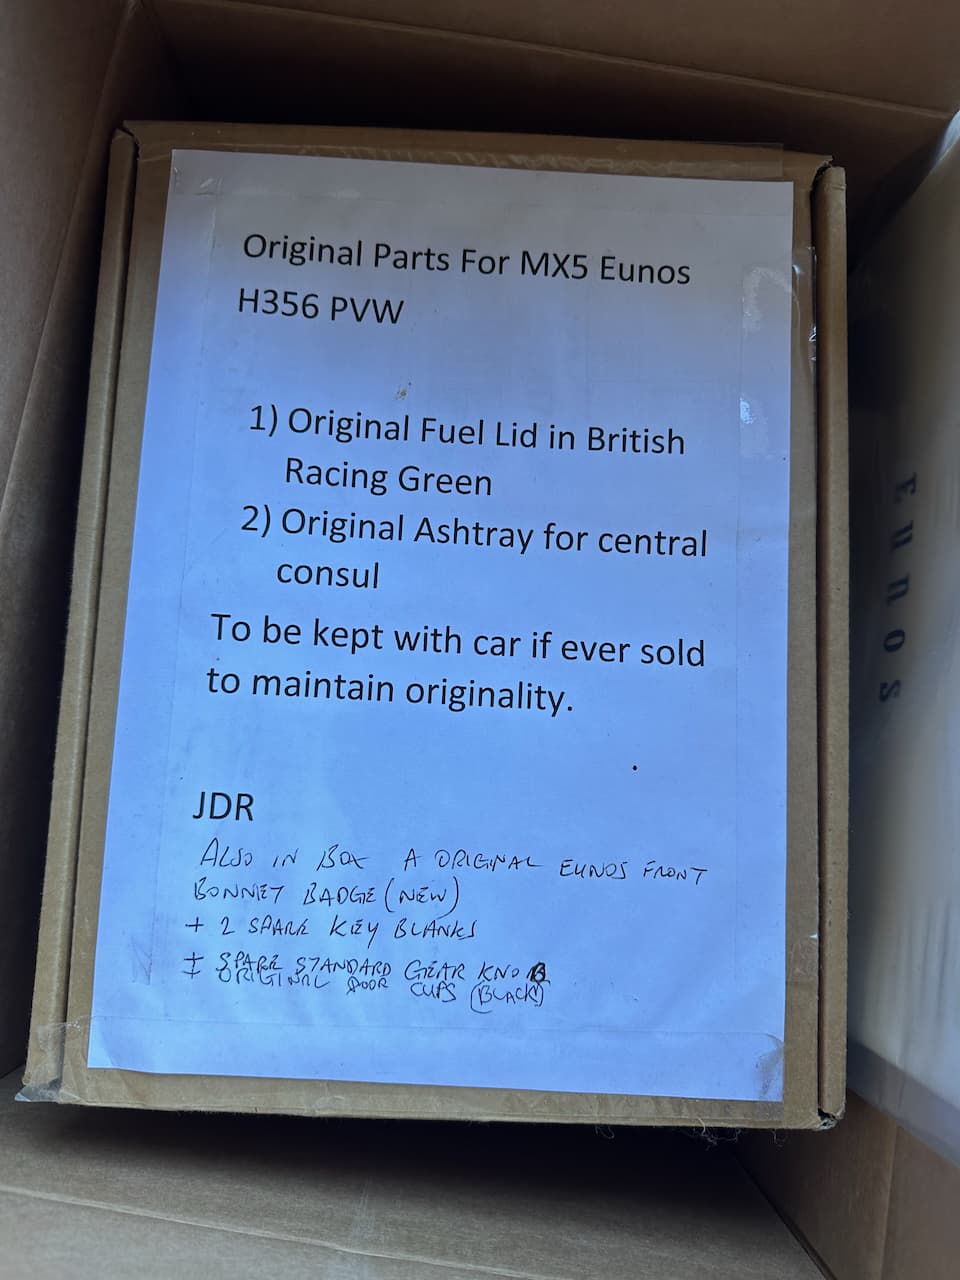 Original Parts For MX5 Eunos
H356 PVW
1) Original Fuel Lid in British
Racing Green
2) Original Ashtray for central
consul
To be kept with car if ever sold
to maintain originality.
JDR
ALSO IN BOX A ORIGINAL EUNOS FRONT
BONNET BADGE (NEW)
+ 2 SPARE KEY BLANKS
+ SPARE STANDARD GEAR KNOB
+ ORIGINAL DOOR CUPS (BLACK)
Eunos